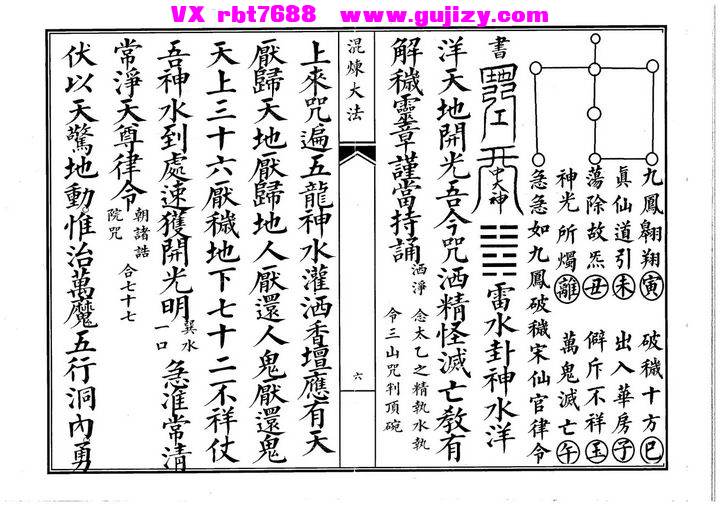 VX rbt7688 www.gujizy.com
九鳳翱翔寅 破穢十方巳
真仙道引未 出入華房子
蕩除故炁丑 僻斥不祥玉
神光所燭離 萬鬼滅亡午
急急如九鳳破穢宋仙官律令
書
雷水卦神水洋
洋天地開光吾今咒洒精怪滅亡教有
解穢靈章謹當持誦 洒淨 念太乙之精執水執
令三山咒刋頂碗
混煉大法
六
上來咒遍五龍神水灌洒香壇應有天
厭歸天地厭歸地人厭還人鬼厭還鬼
天上三十六厭穢地下七十二不祥仗
吾神水到處速獲開光明 巽水
一口 急准常清
常淨天尊律令 朝諸誥
院咒 合七十七
伏以天驚地動惟治萬魔五行洞內勇